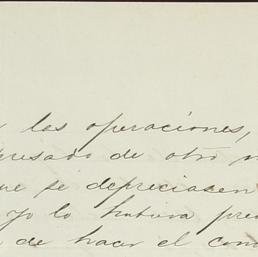 las operaciones,
presado de otro
que se depreciasen
Yo lo hubiera
de hacer el